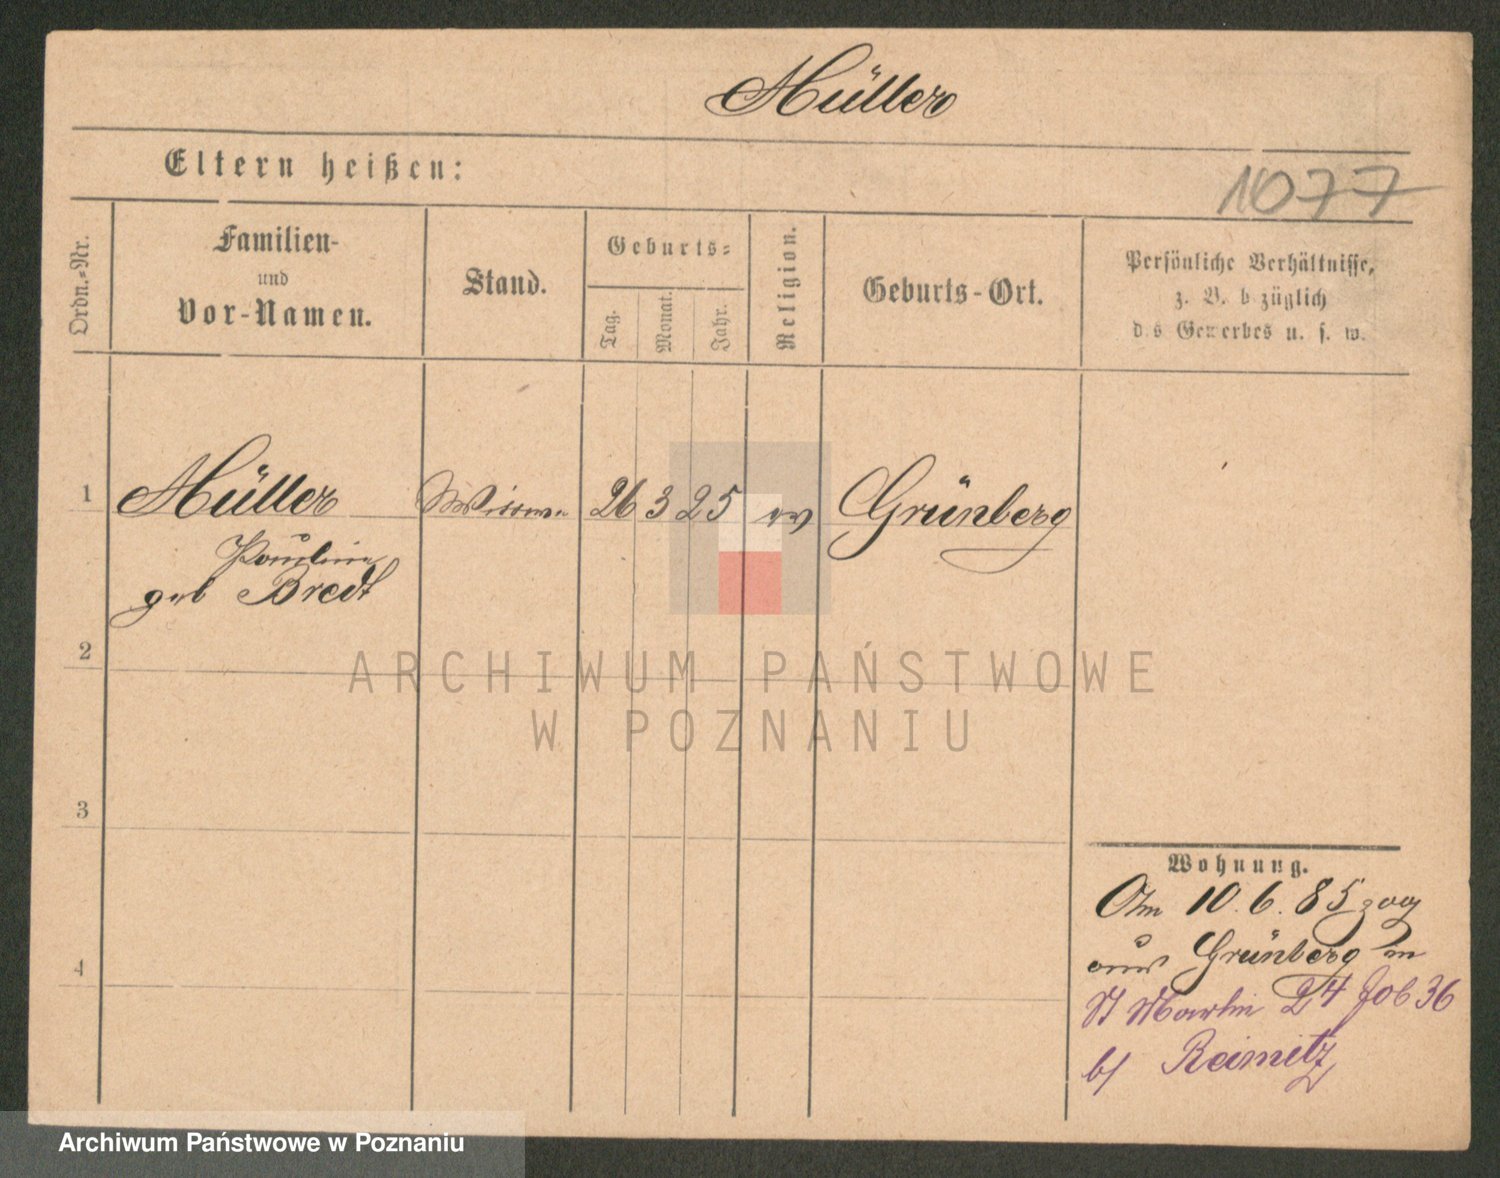 Müller
Eltern heißen:
1077
Ordn.-Nr.
Familien-
und
Vor-Namen.
Stand.
Geburts-
Tag.
Monat.
Jahr.
Religion.
Geburts-Ort.
Persönliche Verhältnisse,
z. B. bezüglich
des Gewerbes u. s. w.
1
Müller
26 3 25
ev
Grünberg
Pauline
geb Bredt
2
3
4
Wohnung.
Am 10.6.85 zog
aus Grünberg
St Martin 24
b/ Reimitz
ARCHIWUM PAŃSTWOWE
W POZNANIU
Archiwum Państwowe w Poznaniu